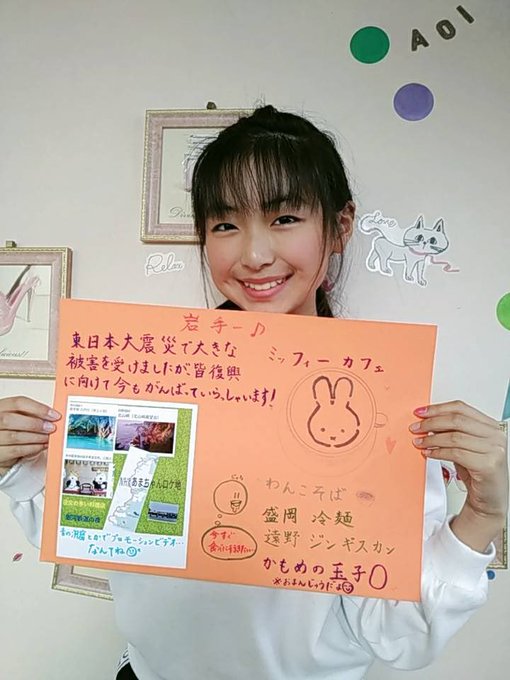 AOI
Love
Relax
岩手ー♪
東日本大震災で大きな
被害を受けましたが皆復興
に向けて今もがんばっていらっしゃいます!
ミッフィー カフェ
あまちゃんロケ地
青の洞窟とかでプロモーションビデオ…
なんてね
わんこそば
盛岡 冷麺
遠野 ジンギスカン
かもめの玉子
※おまんじゅうだよ
今すぐ